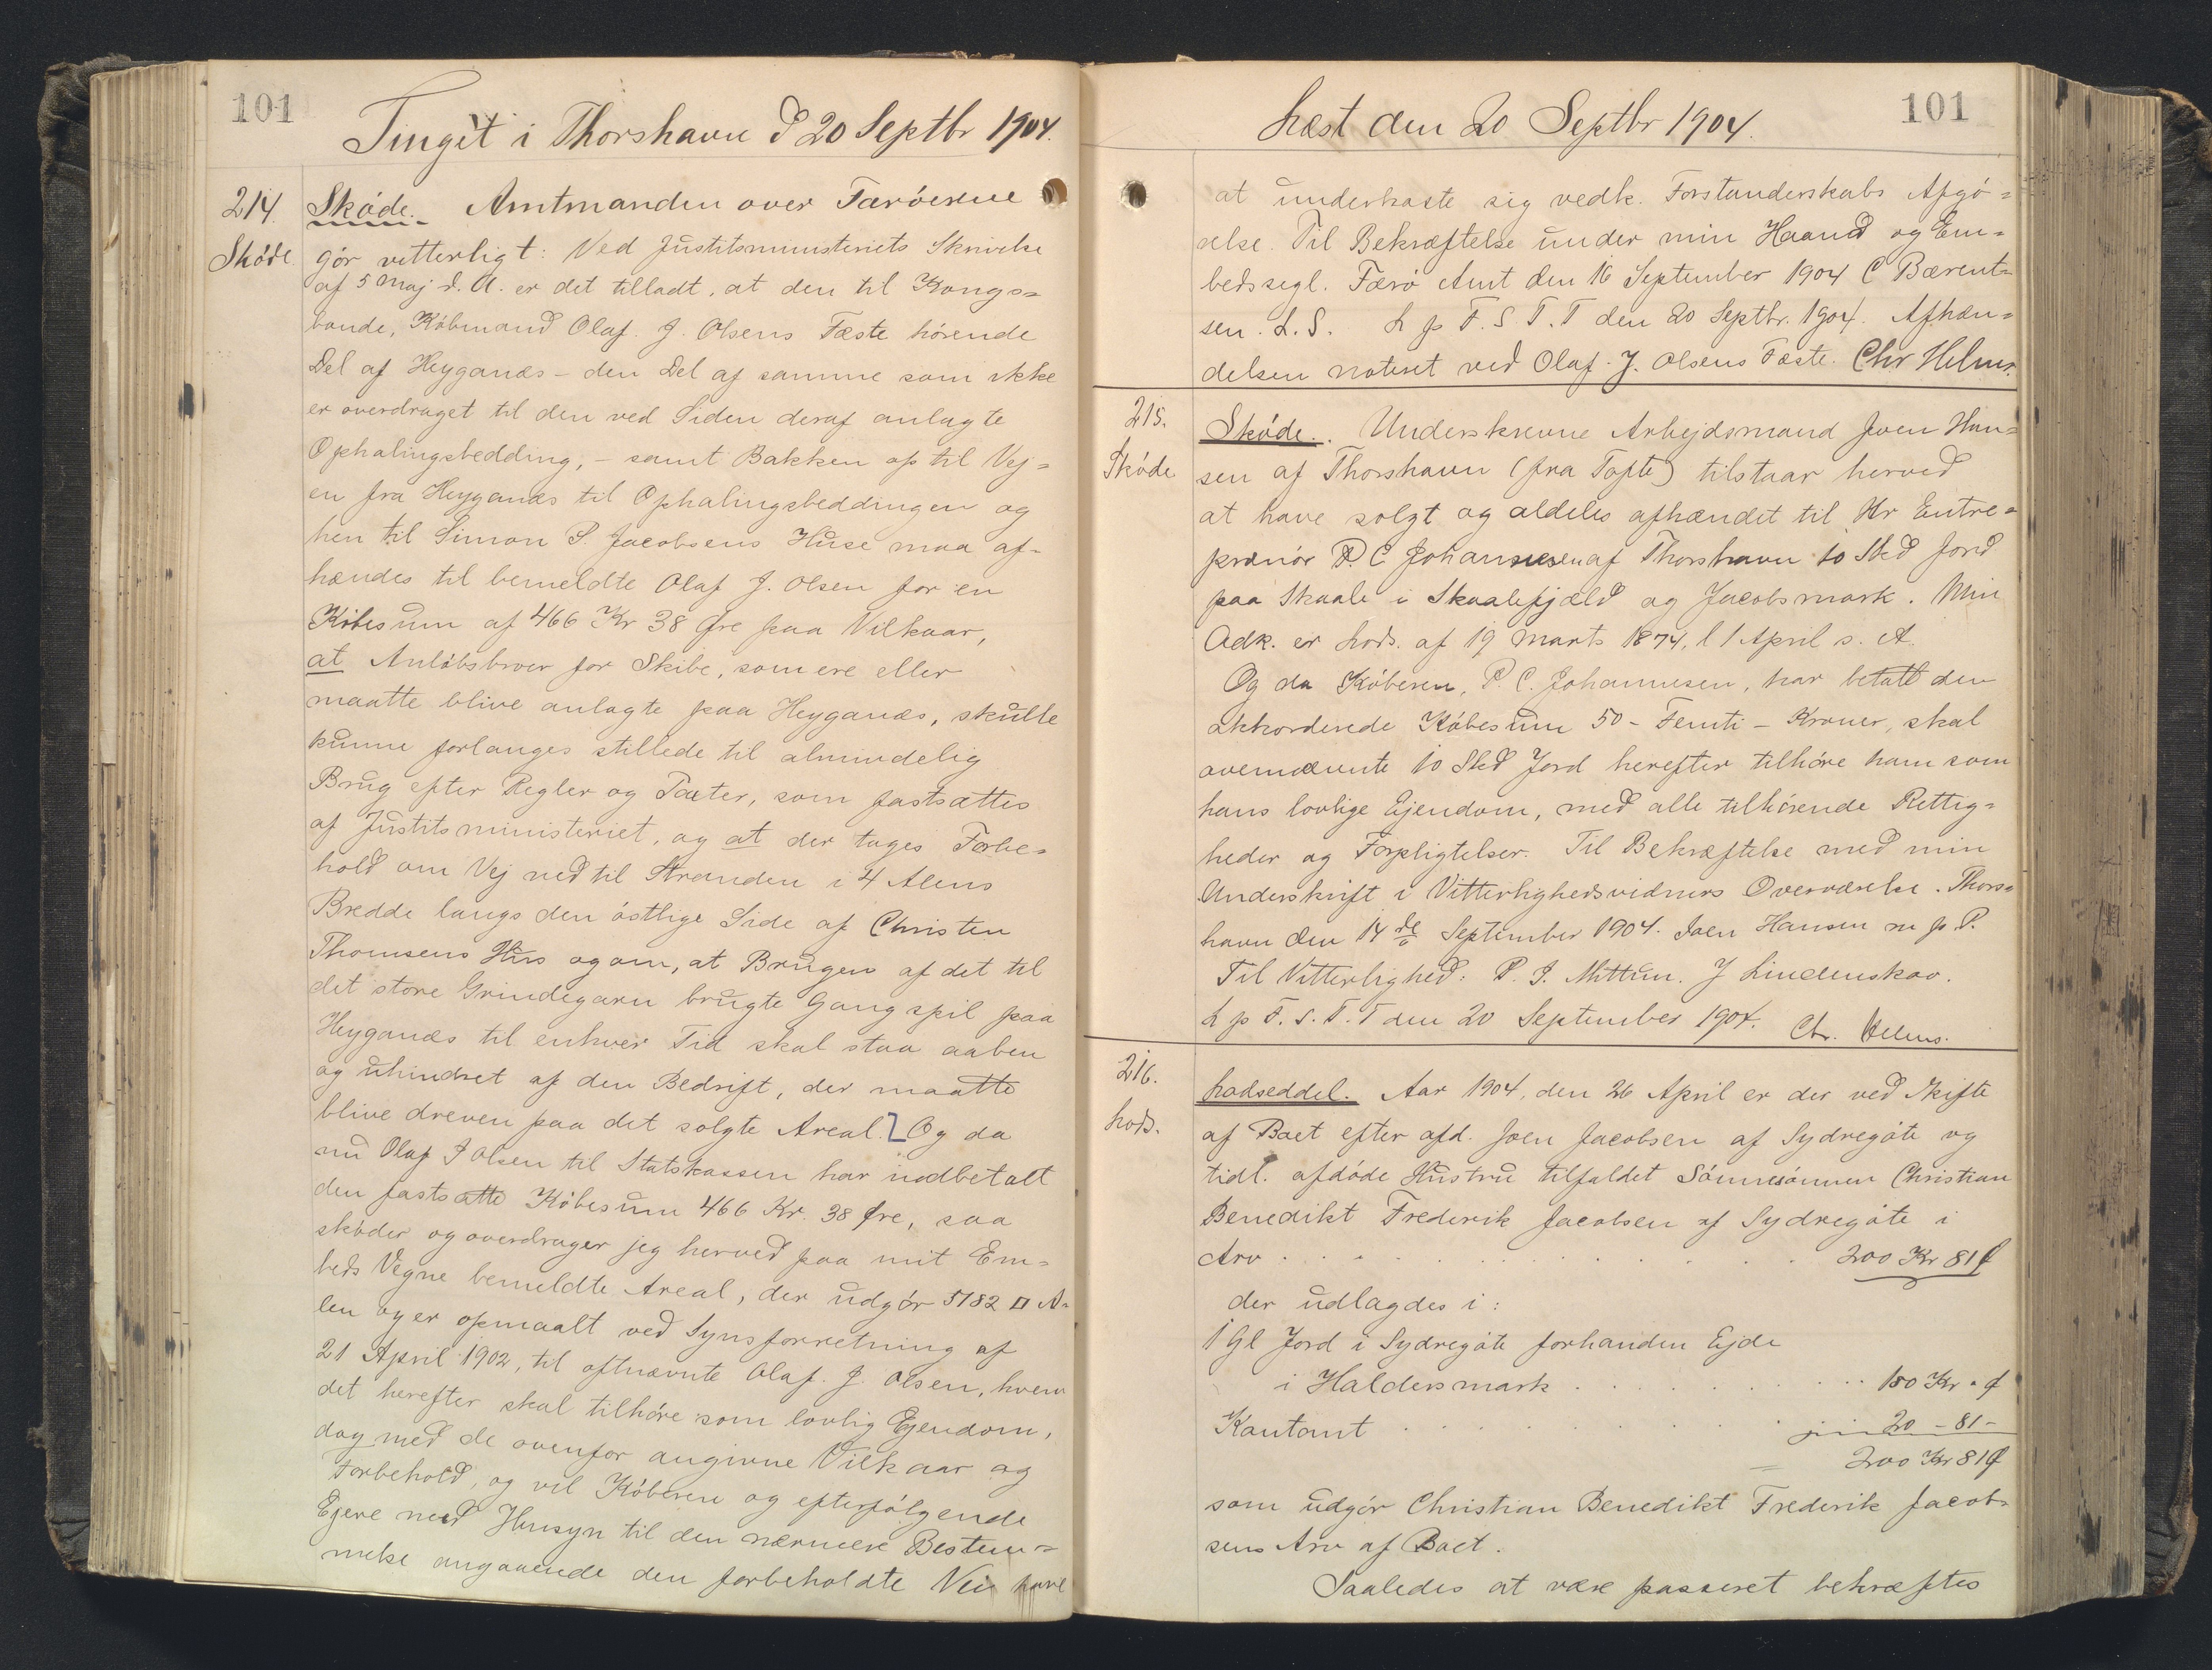 101
Tinget i Thorshavn d 20 Septbr 1904.
214.
Skøde.
Skøde. Amtmanden over Færøerne
gör vitterligt: Ved Justitsministeriets Skrivelse
af 5 Maj d. A. er det tilladt, at den til Kongs=
bonde, Købmand Olaf. J. Olsens Fæste hørende
Del af Heyganæs – den Del af samme som ikke
er overdraget til den ved Siden deraf anlagte
Ophalingsbedding, – samt Bakken op til Vej=
en fra Heyganæs til Ophalingsbeddingen og
hen til Simon P. Jacobsens Huse maa af=
hændes til bemeldte Olaf J. Olsen for en
Købesum af 466 Kr 38 Øre paa Vilkaar,
at Anløbsbroer for Skibe, som ere eller
maatte blive anlagte paa Heyganæs, skulle
kunne forlanges stillede til almindelig
Brug efter Regler og Taxter, som fastsættes
af Justitsministeriet, og at der tages Forbe=
hold om Vej ned til Stranden i 4 Alens
Bredde langs den östlige Side af Christen
Thomsens Hus og om, at Brugen af det til
det store Grindegarn brugte Gangspil paa
Heyganæs til enhver Tid skal staa aaben
og uhindret af den Bedrift, der maatte
blive dreven paa det solgte Areal. Og da
nu Olaf J Olsen til Statskassen har indbetalt
den fastsatte Købesum 466 Kr. 38 Øre, saa
skøder og overdrager jeg herved paa mit Em=
beds Vegne bemeldte Areal, der udgör 5182 □ A=
len og er opmaalt ved Synsforretning af
21 April 1902, til oftnævnte Olaf. J. Olsen, hvem
det herefter skal tilhøre som lovlig Ejendom,
dog med de ovenfor angivne Vilkaar og
Forbehold, og vil Køberen og efterfølgende
Ejere med Hensyn til den nærmere Bestem=
melse angaaende den forbeholdte Vei have
101
læst den 20 Septbr 1904.
at underkaste sig vedk. Forstanderskabs Afgö=
relse. Til Bekræftelse under min Haand og Em=
bedssegl. Færø Amt den 16 September 1904 C Bærent=
sen. L. S. L p F. S. T. T den 20 Septbr. 1904. Afhæn=
delsen noteret ved Olaf. J. Olsens Fæste. Chr Helms.
215.
Skøde.
Skøde. Underskrevne Arbejdsmand Joen Han=
sen af Thorshavn (fra Tofte) tilstaar herved
at have solgt og aldeles afhændet til Hr Entre=
prenör P. C Johannesen af Thorshavn 10 Skd Jord
paa Skaale i Skaalefjæld og Jacobsmark. Min
Adk. er Lods. af 19 Marts 1874, l 1 April s. A.
Og da Køberen, P. C. Johannesen, har betalt den
akkorderede Købesum 50 – Femti – Kroner, skal
ovennævnte 10 Skd Jord herefter tilhøre ham som
hans lovlige Ejendom, med alle tilhørende Rettig=
heder og Forpligtelser. Til Bekræftelse med min
Underskrift i Vitterlighedsvidners Overværelse. Thors=
havn den 14 de September 1904. Joen Hansen m p P.
Til Vitterlighed: P. J. Mittun. J Lindenskov.
L p F. S. T. T den 20 September 1904. Chr. Helms.
216.
Lods.
Lodseddel. Aar 1904, den 26 April er der ved Skifte
af Boet efter afd. Joen Jacobsen af Sydregøte og
tidl. afdøde Hustru tilfaldet Sönnesönnen Christian
Benedikt Frederik Jacobsen af Sydregøte i
Arv . . . . . . . . . . 200 Kr 81 Ø
der udlagdes i:
1 Gl Jord i Sydregøte forhanden Ejde
i Haldersmark . . . . . . . 180 Kr . Ø
Kontant . . . . . . . 20 – 81 –
= 200 Kr 81 Ø
som udgör Christian Benedikt Frederik Jacob=
sens Arv af Boet.
Saaledes at være passeret bekræftes